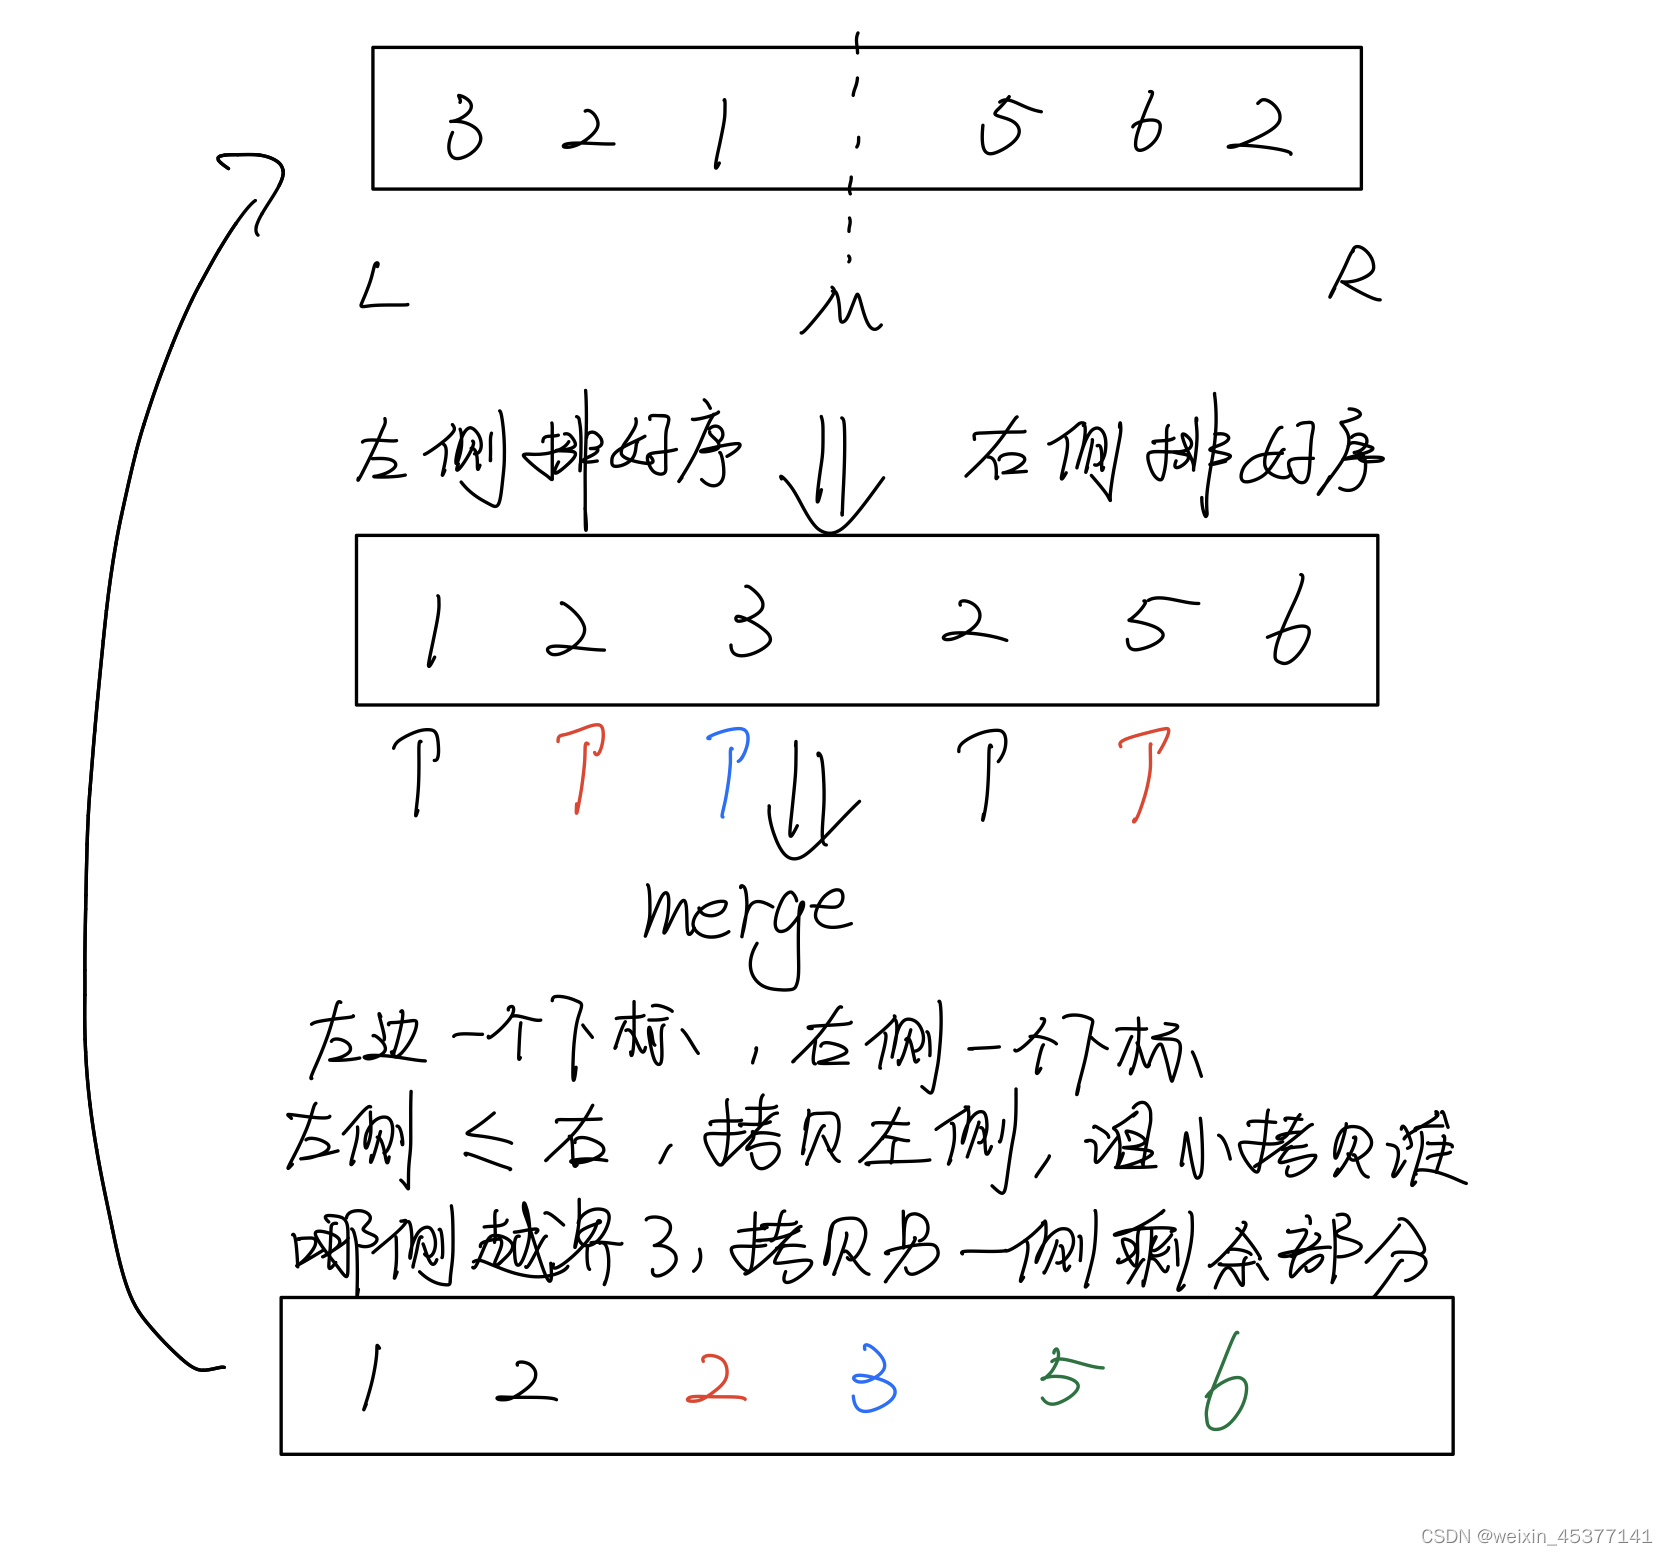 3 2 1 5 6 2
L M R
左侧排好序 右侧排好序
1 2 3 2 5 6
merge
左边一个下标，右侧一个下标
左侧≤右，拷贝左侧，谁小拷贝谁
哪侧越界了，拷贝另一侧剩余部分
1 2 2 3 5 6
CSDN @weixin_45377141